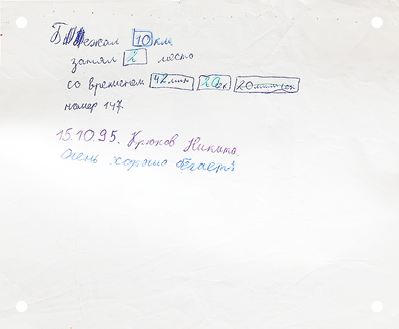 Бежал 10 км
занял 2 место
со временем 42 мин 20 сек
номер 147.
15.10.95. Крюков Никита.
Очень хорошо бегает!